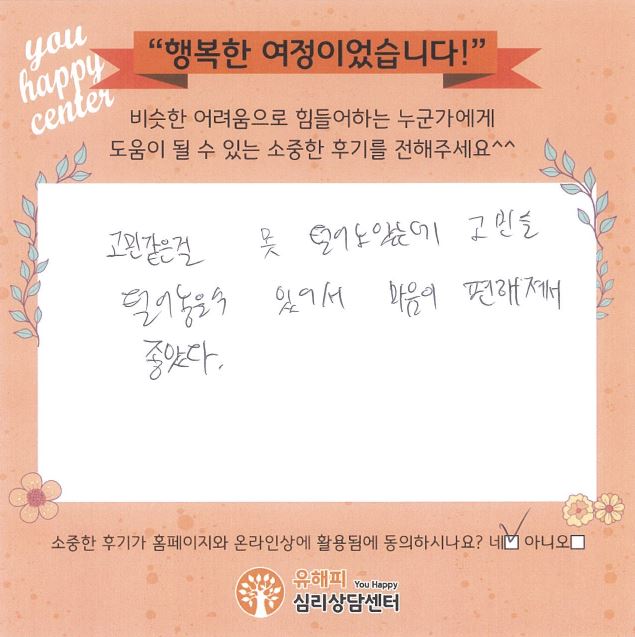 you
happy
center
“행복한 여정이었습니다!”
비슷한 어려움으로 힘들어하는 누군가에게
도움이 될 수 있는 소중한 후기를 전해주세요^^
고민같은걸 못 털어노았는데 고민을
털어놓을수 있어서 마음이 편해져서
좋았다.
소중한 후기가 홈페이지와 온라인상에 활용됨에 동의하시나요? 네 아니오
유해피 You Happy
심리상담센터